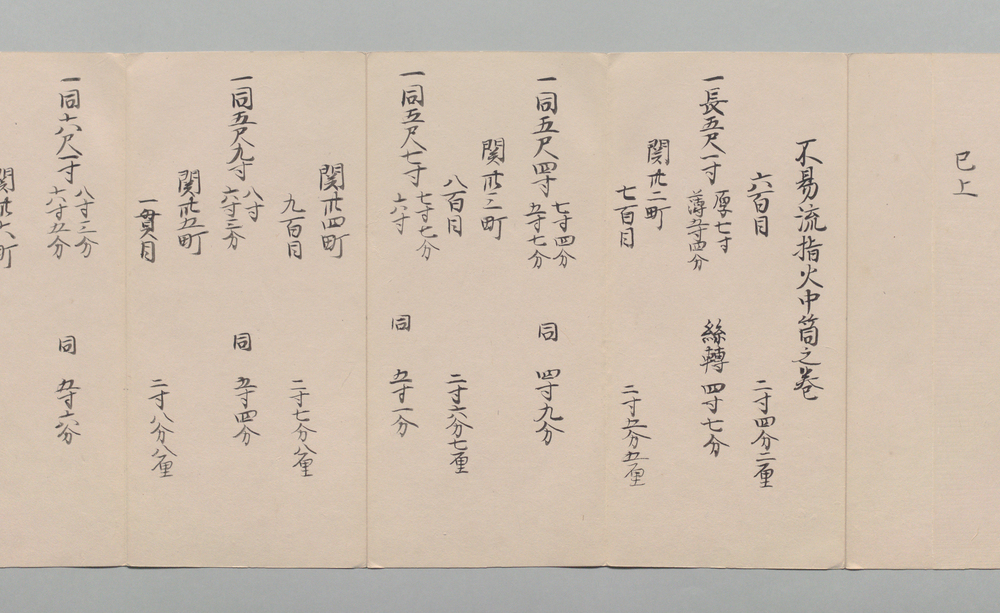 已上
不易流指火中筒之巻
六百目　二寸四分二厘
一長五尺一寸　厚七寸　薄五寸四分　絲轉　四寸七分
関卅二町
七百目　二寸五分五厘
一同五尺四寸　七寸四分　五寸七分　同　四寸九分
関卅三町
八百目　二寸六分七厘
一同五尺七寸　七寸七分　六寸　同　五寸一分
関卅四町
九百目　二寸七分八厘
一同五尺九寸　八寸　六寸三分　同　五寸四分
関卅五町
一貫目　二寸八分八厘
一同六尺一寸　八寸三分　六寸五分　同　五寸六分
関卅六町